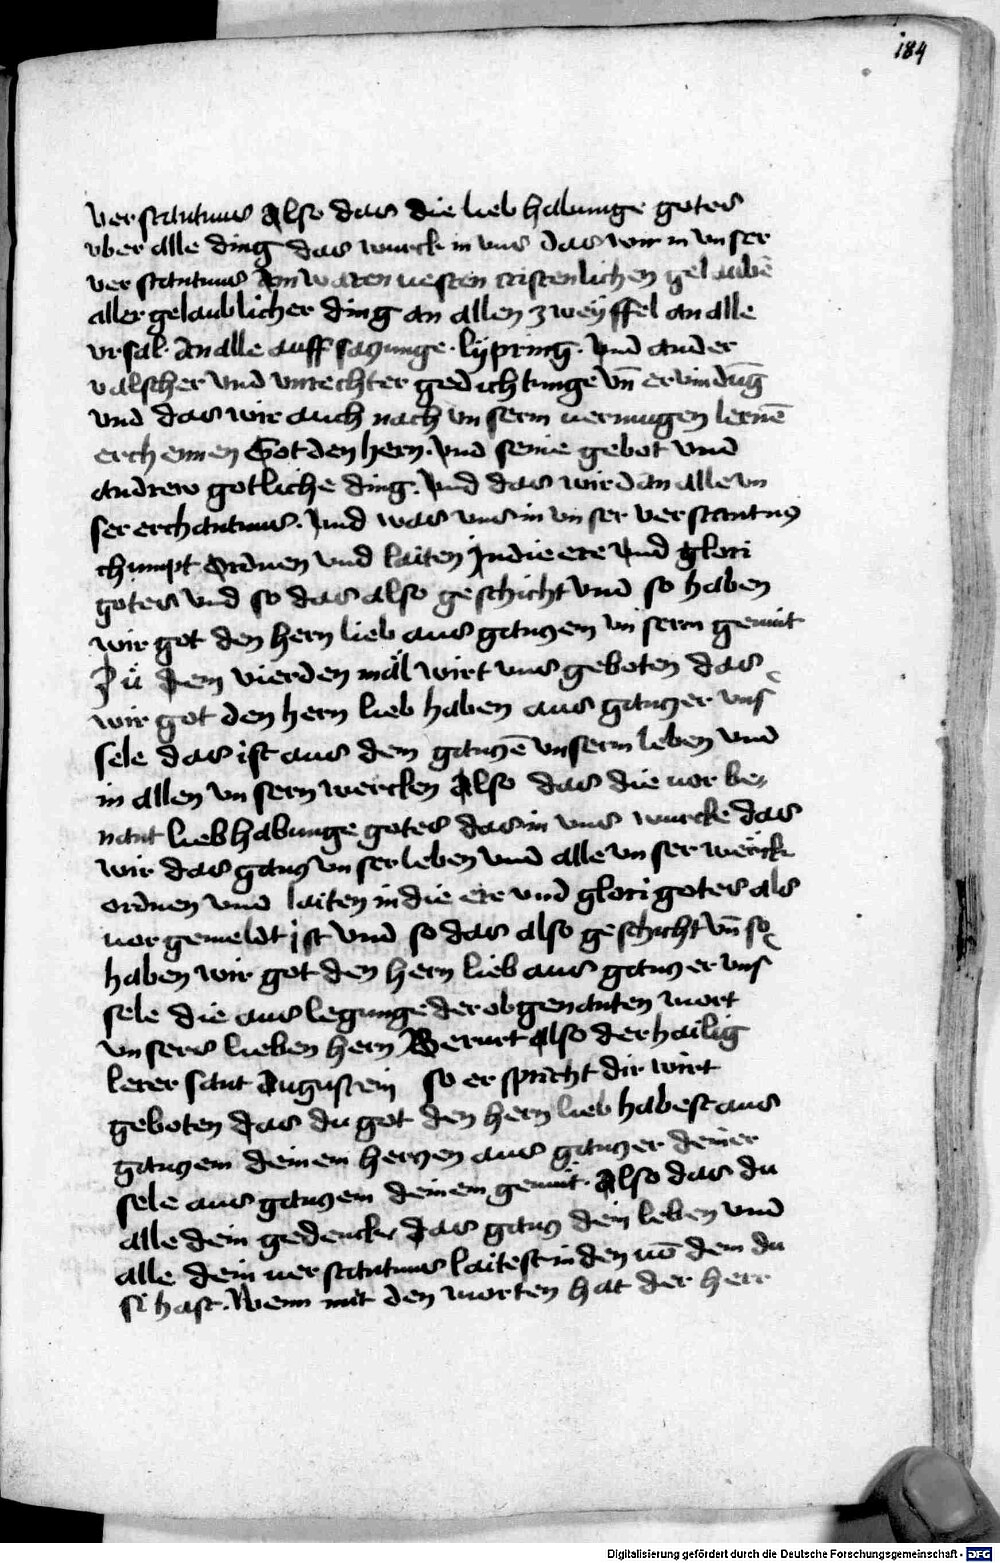 184
verstantnus Also das die lieb habunge gotes
vber alle ding das wurck in vns das wir in vnser
verstantnus Ain waren uesten cristenlichen gelaubē
aller gelaublicher ding an allen zweyffel an alle
vrsal. An alle auffsagunge. Vnd ander
valscher vnd vnrechter gedichtunge vn̄ ervindūg
vnd das wir auch nach vnserm uermugen lernē
erchennen Got den hern. vnd seine gebot vnd
andrew gotliche ding. vnd das wir dan alle vn
ser erchantnus. vnd was vns in vnser verstantnus
chumpt Ordnen vnd laiten In die ere vnd glori
gotes vnd so das also geschicht vnd so haben
wir got den hern lieb aus ganczem vnserm gemut
Zu dem vierden mal wirt vns geboten das
wir got den hern lieb haben aus ganczer vns
sele das ist aus dem ganczē vnserm leben vnd
in allen vnsern wercken Also das die uor be
nant liebhabunge gotes das in vns wurcke das
wir das gancz vnser leben vnd alle vnser werck
ordnen vnd laiten in die ere vnd glori gotes als
uor gemeldt ist vnd so das also geschicht vn̄ so
haben wir got den hern lieb aus ganczer vns
sele die auslegunge der obgenanten wort
vnsers lieben hern Berurt Also der hailig
lerer sant Augustein so er spricht dir wirt
geboten das du got den hern lieb habest aus
ganczem deinem herczen aus ganczer deiner
sele aus ganczem deinem gemut. Also das du
alle dein gedencke das gancz dein leben vnd
alle dein uerstantnus laitest in den uō dem du
si hast. Wenn mit den worten hat der herr
Digitalisierung gefördert durch die Deutsche Forschungsgemeinschaft - DFG